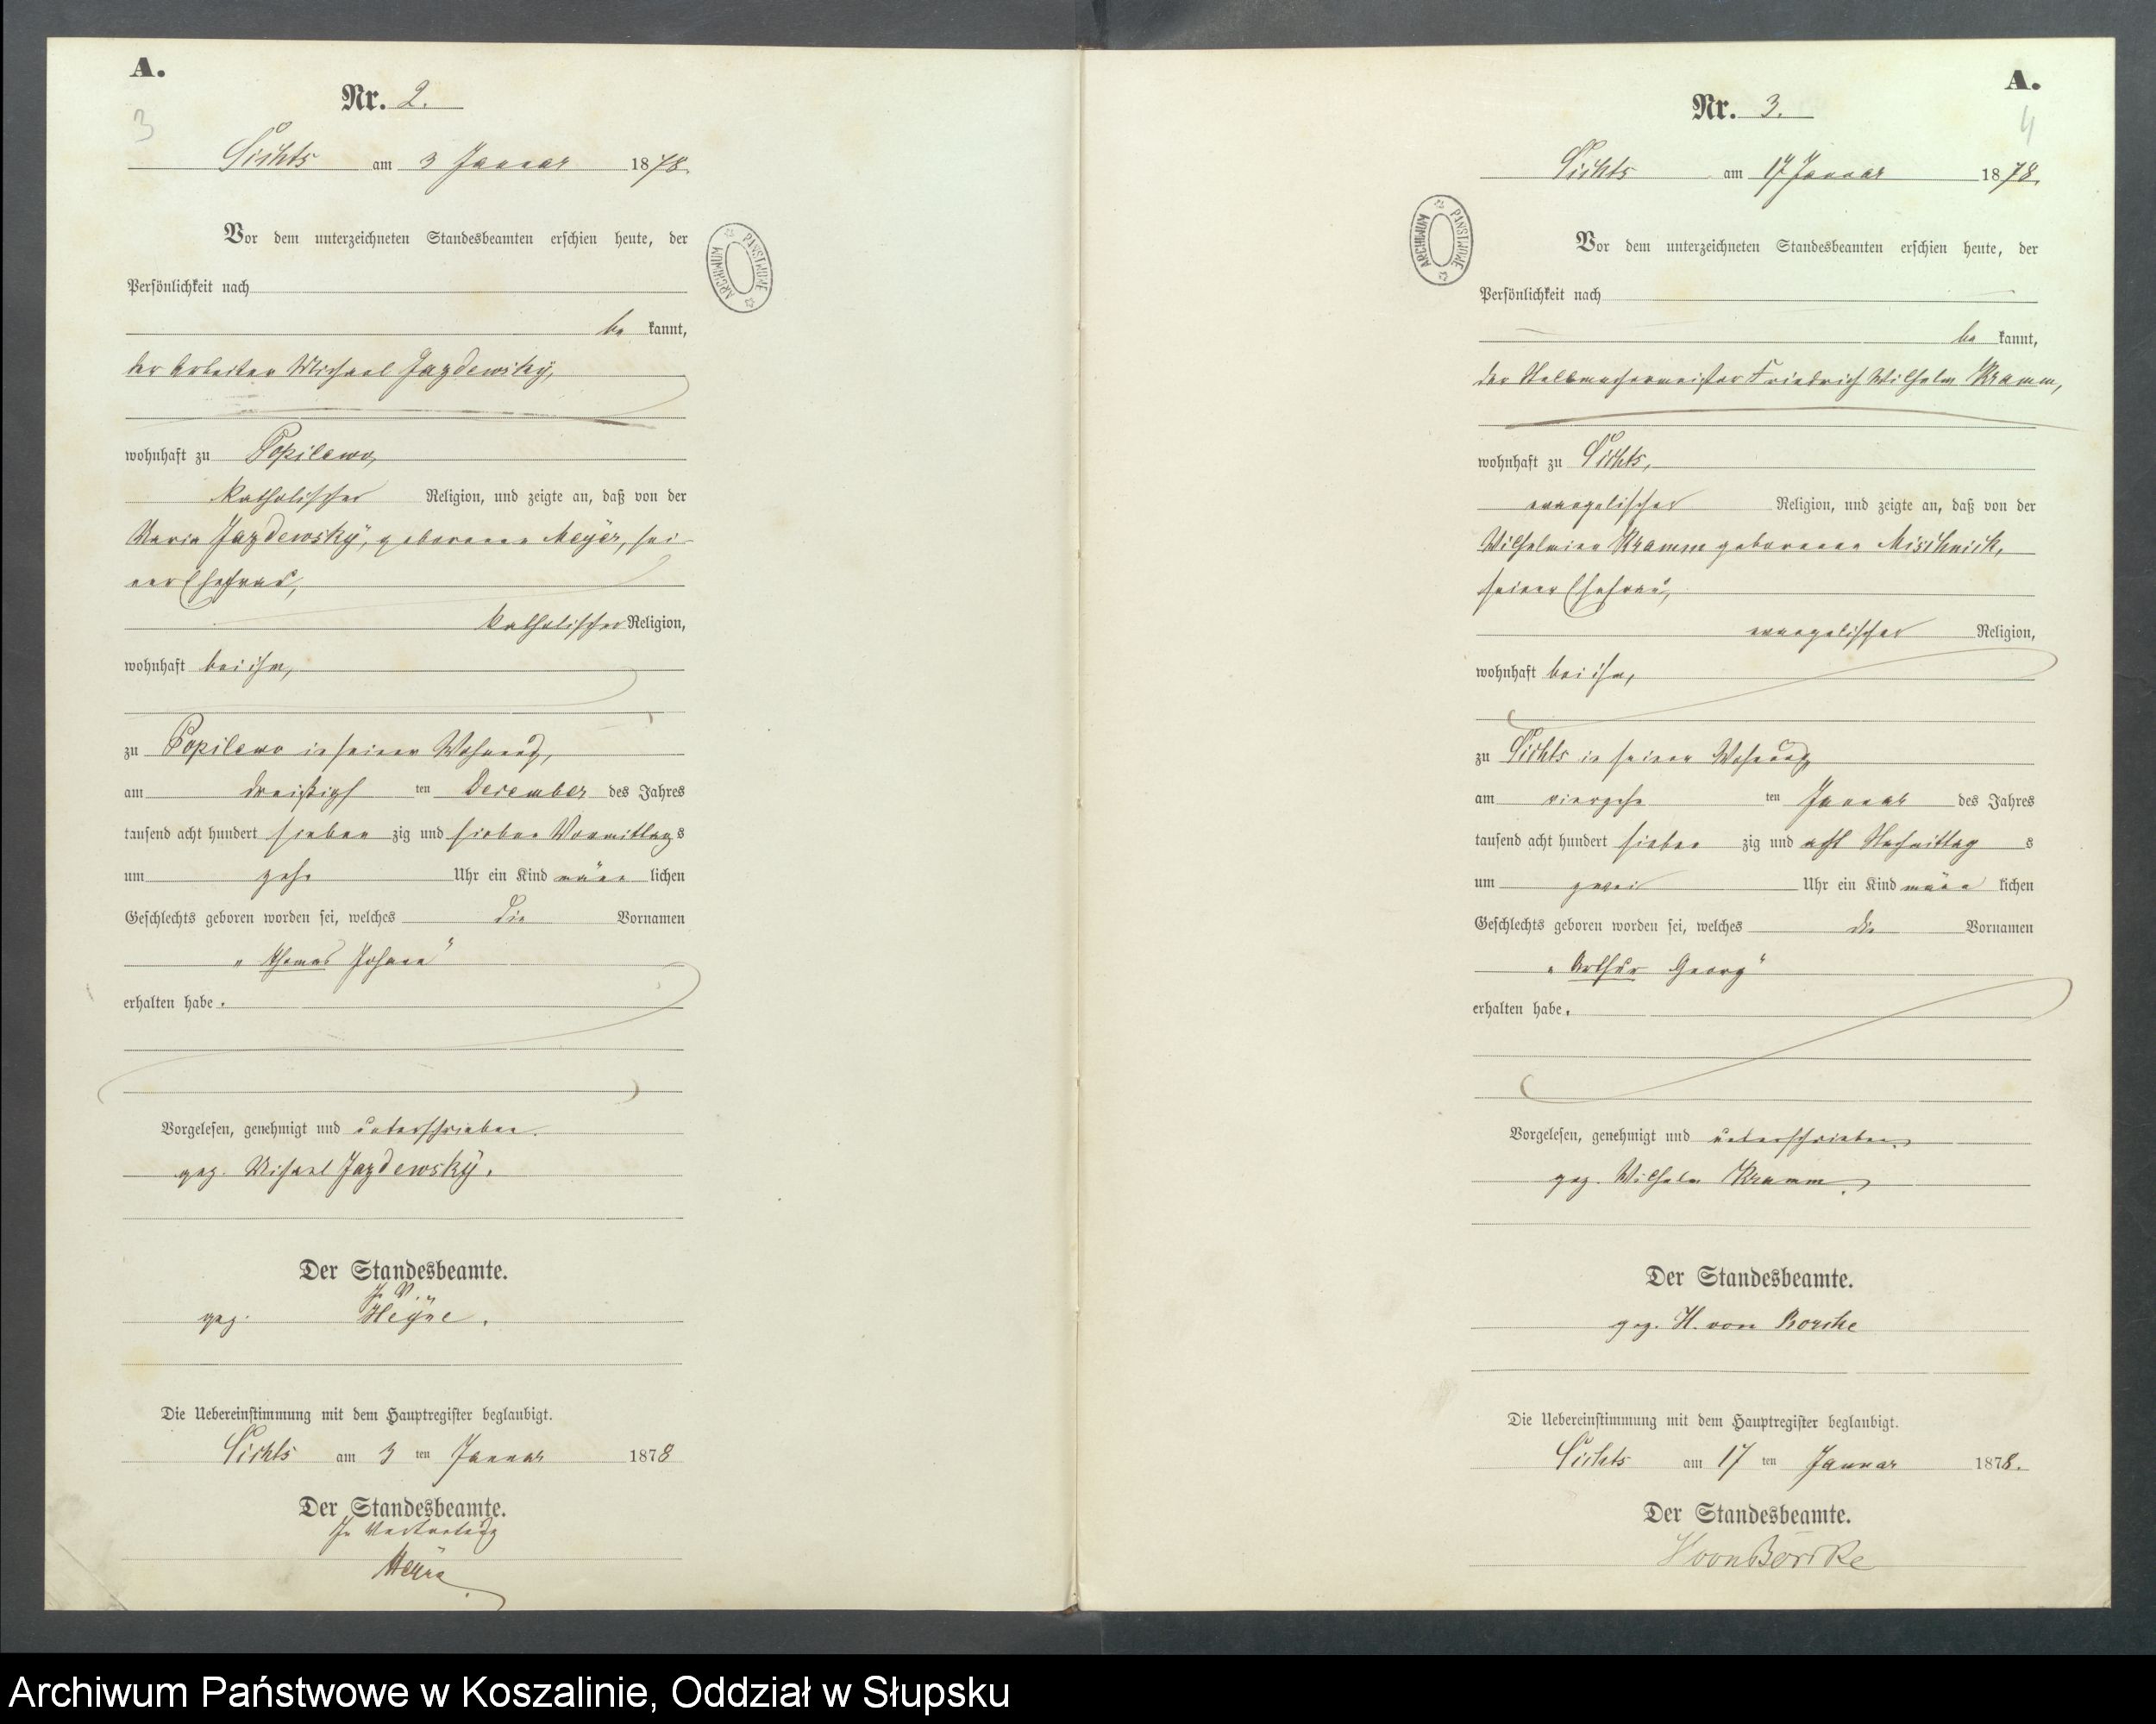 A.
3
Nr. 2.
Lichts am 3 Januar 1878.
ARCHIWUM PAŃSTWOWE
Vor dem unterzeichneten Standesbeamten erschien heute, der
Persönlichkeit nach
be kannt,
der Arbeiter Michael Jazdewsky,
wohnhaft zu Popilewo,
katholischer Religion, und zeigte an, daß von der
Maria Jazdewsky, geborenen Meyer, sei-
ner Ehefrau,
katholischer Religion,
wohnhaft bei ihm,
zu Popilewo in seiner Wohnung,
am dreißigst ten December des Jahres
tausend acht hundert sieben zig und sieben Vormittags
um zehn Uhr ein Kind männ lichen
Geschlechts geboren worden sei, welches die Vornamen
„Thomas Johann“
erhalten habe.
Vorgelesen, genehmigt und unterschrieben.
gez. Michael Jazdewsky.
Der Standesbeamte.
In V.
gez. Heyne.
Die Uebereinstimmung mit dem Hauptregister beglaubigt.
Lichts am 3 ten Januar 1878
Der Standesbeamte.
In Vertretung
Heyne
A.
4
Nr. 3.
Lichts am 17 Januar 1878.
ARCHIWUM PAŃSTWOWE
Vor dem unterzeichneten Standesbeamten erschien heute, der
Persönlichkeit nach
be kannt,
der Stellmachermeister Friedrich Wilhelm Kramm,
wohnhaft zu Lichts,
evangelischer Religion, und zeigte an, daß von der
Wilhelmine Kramm geborenen Mischnick,
seiner Ehefrau,
evangelischer Religion,
wohnhaft bei ihm,
zu Lichts in seiner Wohnung
am vierzehn ten Januar des Jahres
tausend acht hundert sieben zig und acht Nachmittag s
um zwei Uhr ein Kind männ lichen
Geschlechts geboren worden sei, welches die Vornamen
„Arthur Georg“
erhalten habe.
Vorgelesen, genehmigt und unterschrieben.
gez. Wilhelm Kramm.
Der Standesbeamte.
gez. H. von Borcke
Die Uebereinstimmung mit dem Hauptregister beglaubigt.
Lichts am 17 ten Januar 1878.
Der Standesbeamte.
H von Borcke
Archiwum Państwowe w Koszalinie, Oddział w Słupsku